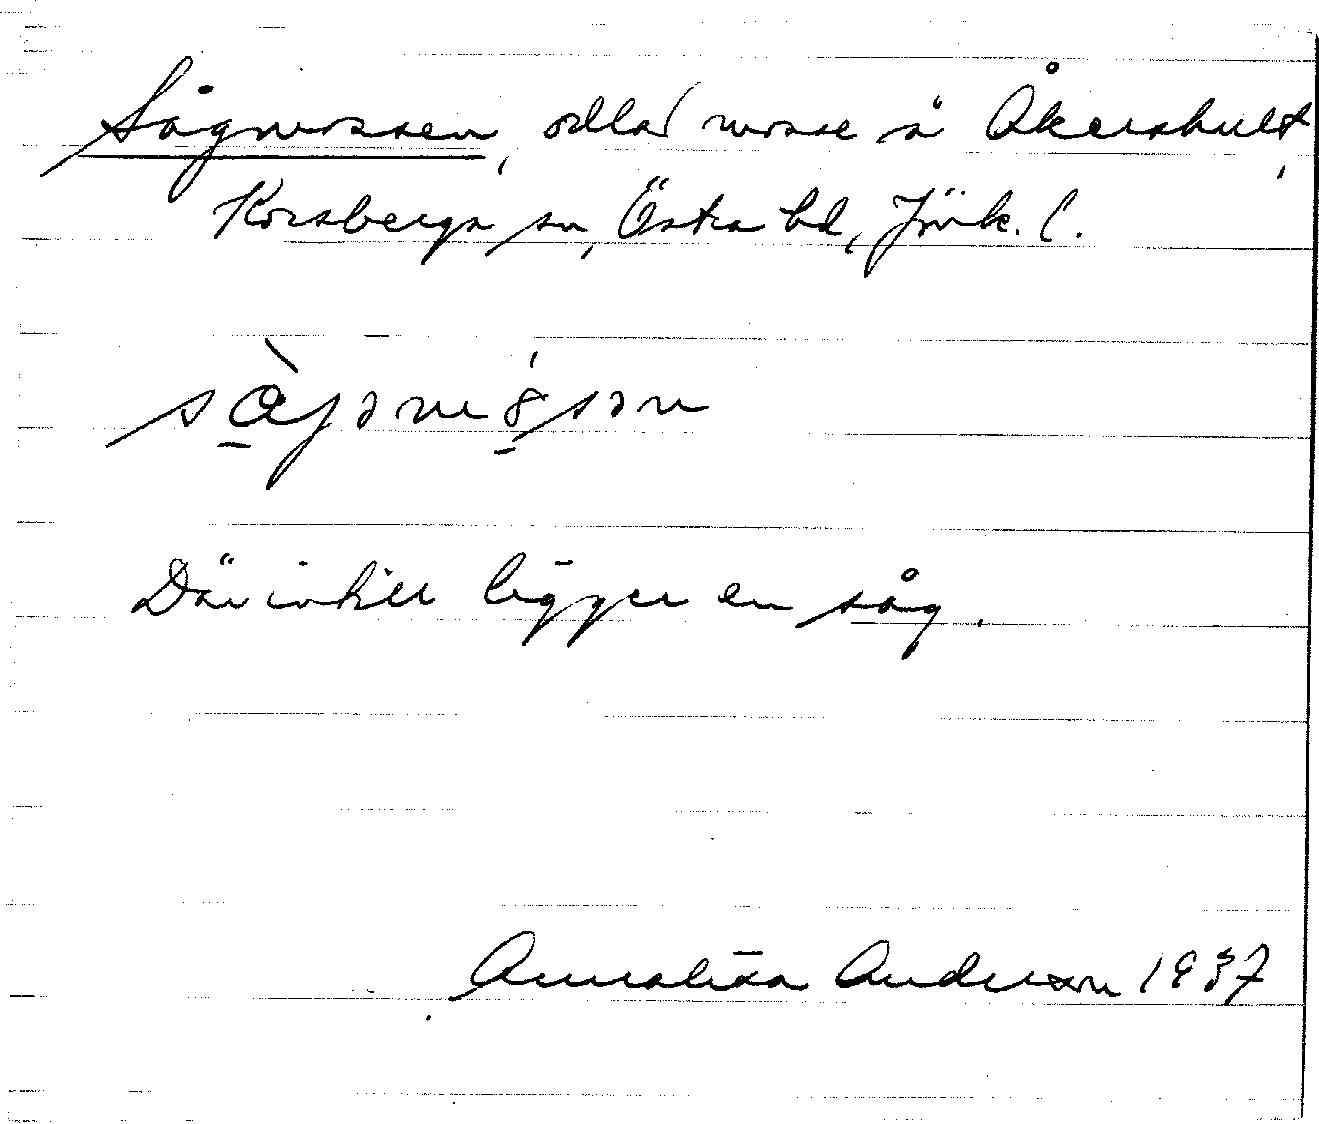 Sågmossen, odlad mosse å Åkershult,
Korsbergs sn, Östra hd, Jönk. l.
Där intill ligger en såg.
Annalisa Anderson 1937